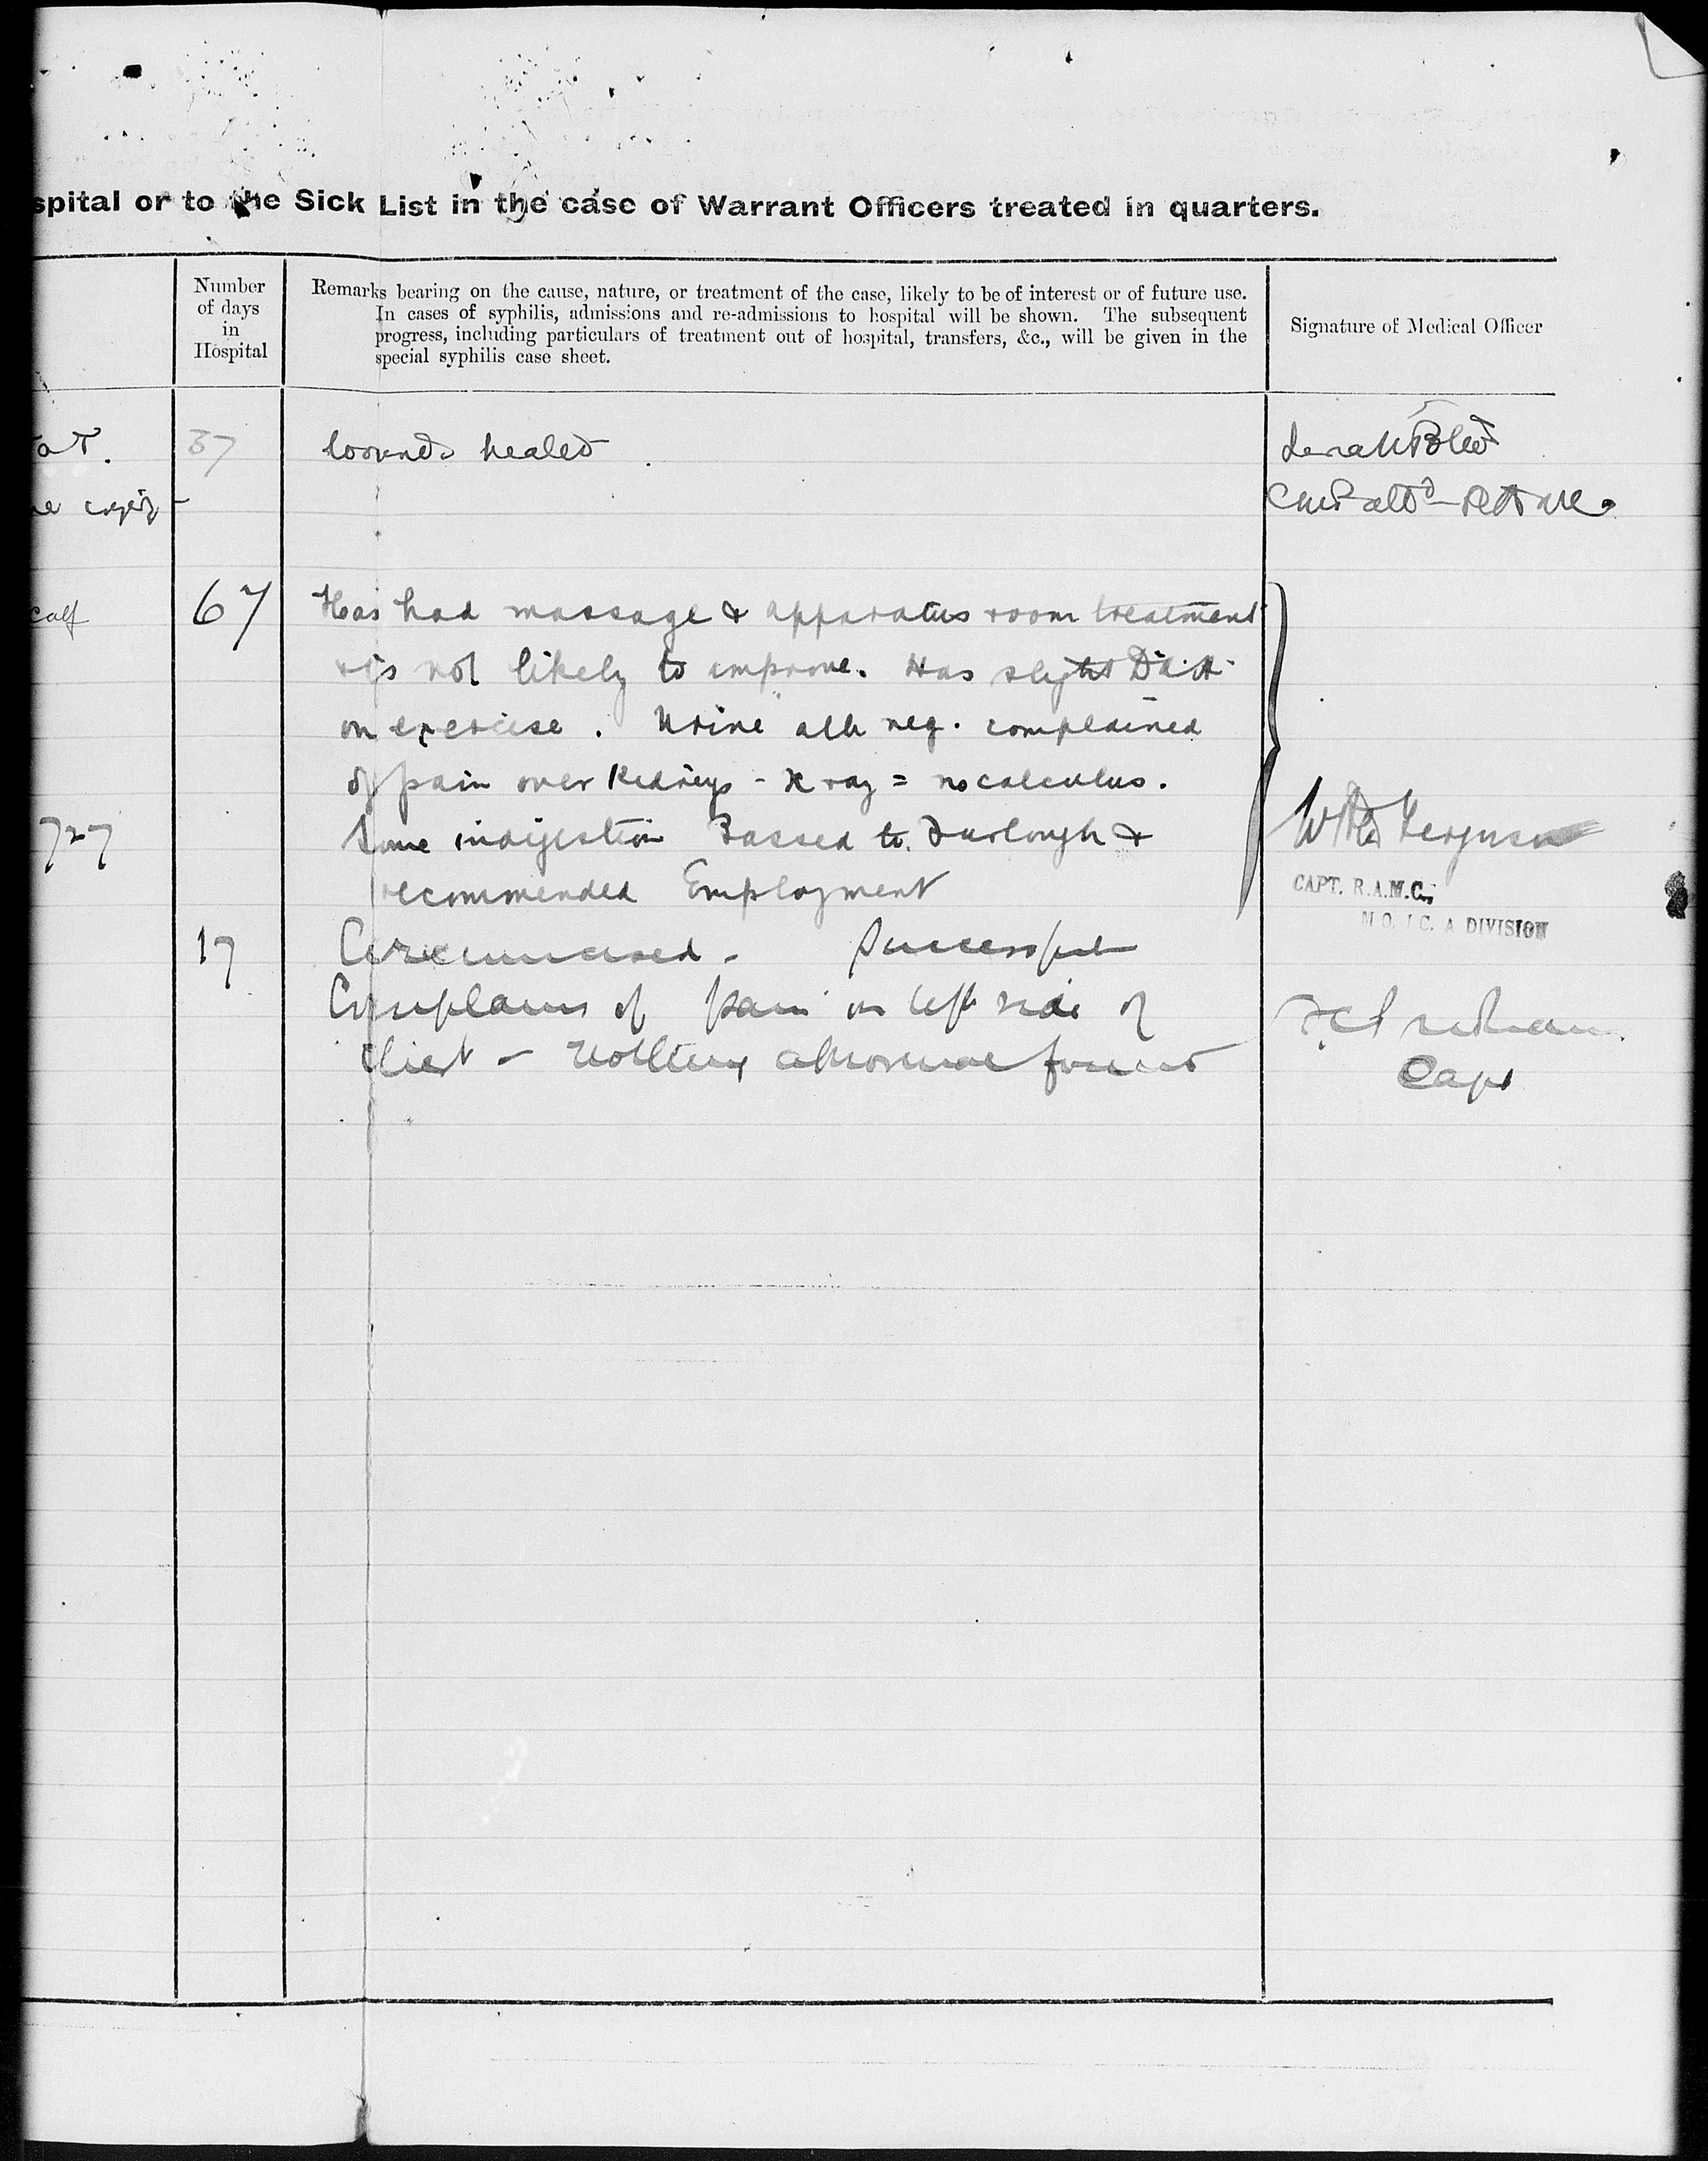 spital or to the Sick List in the case of Warrant Officers treated in quarters.
Number
of days
in
Hospital
Remarks bearing on the cause, nature, or treatment of the case, likely to be of interest or of future use.
In cases of syphilis, admissions and re-admissions to hospital will be shown. The subsequent
progress, including particulars of treatment out of hospital, transfers, &c., will be given in the
special syphilis case sheet.
Signature of Medical Officer
37
wounds healed
calf
67
Has had massage & apparatus room treatment
& is not likely to improve. Has slight D.A.H.
on exercise. Urine alb neg. complained
of pain over kidneys - X ray = no calculus.
Some indigestion Passed to Furlough &
recommended Employment
727
Ferguson
CAPT. R.A.M.C.
M.O. I/C. A DIVISION
17
Circumcised - Successful
Complains of pain in left side of
chest - Nothing abnormal found
Capt